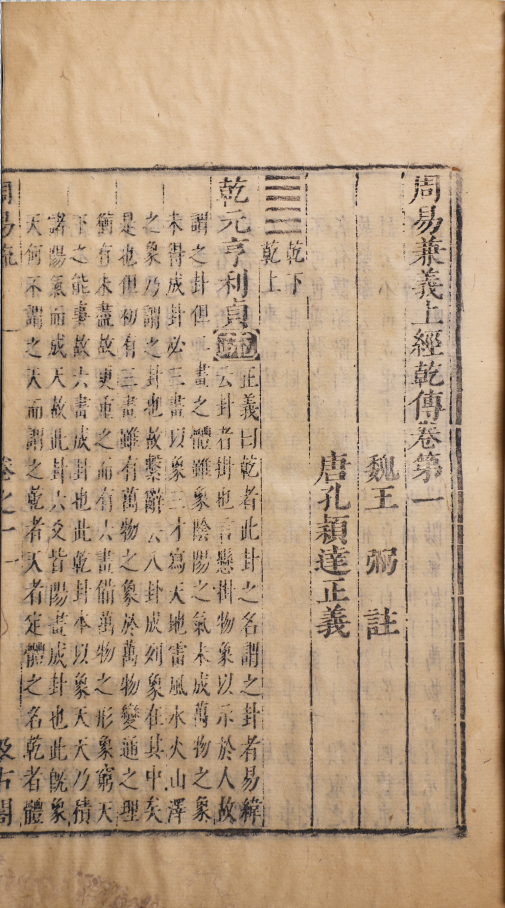 周易兼義上經乾傳卷第一
魏王弼註
唐孔穎達正義
乾下
乾上
乾元亨利貞疏正義曰乾者此卦之名謂之卦者易緯
云卦者掛也言懸掛物象以示於人故
謂之卦但二畫之體雖象陰陽之氣未成萬物之象
未得成卦必三畫以象三才寫天地雷風水火山澤
之象乃謂之卦也故繫辭云八卦成列象在其中矣
是也但初有三畫雖有萬物之象於萬物變通之理
猶有未盡故更重之而有六畫備萬物之形象窮天
下之能事故六畫成卦也此乾卦本以象天天乃積
諸陽氣而成天故此卦六爻皆陽畫成卦也此既象
天何不謂之天而謂之乾者天者定體之名乾者體
周易疏
卷之一
一
汲古閣